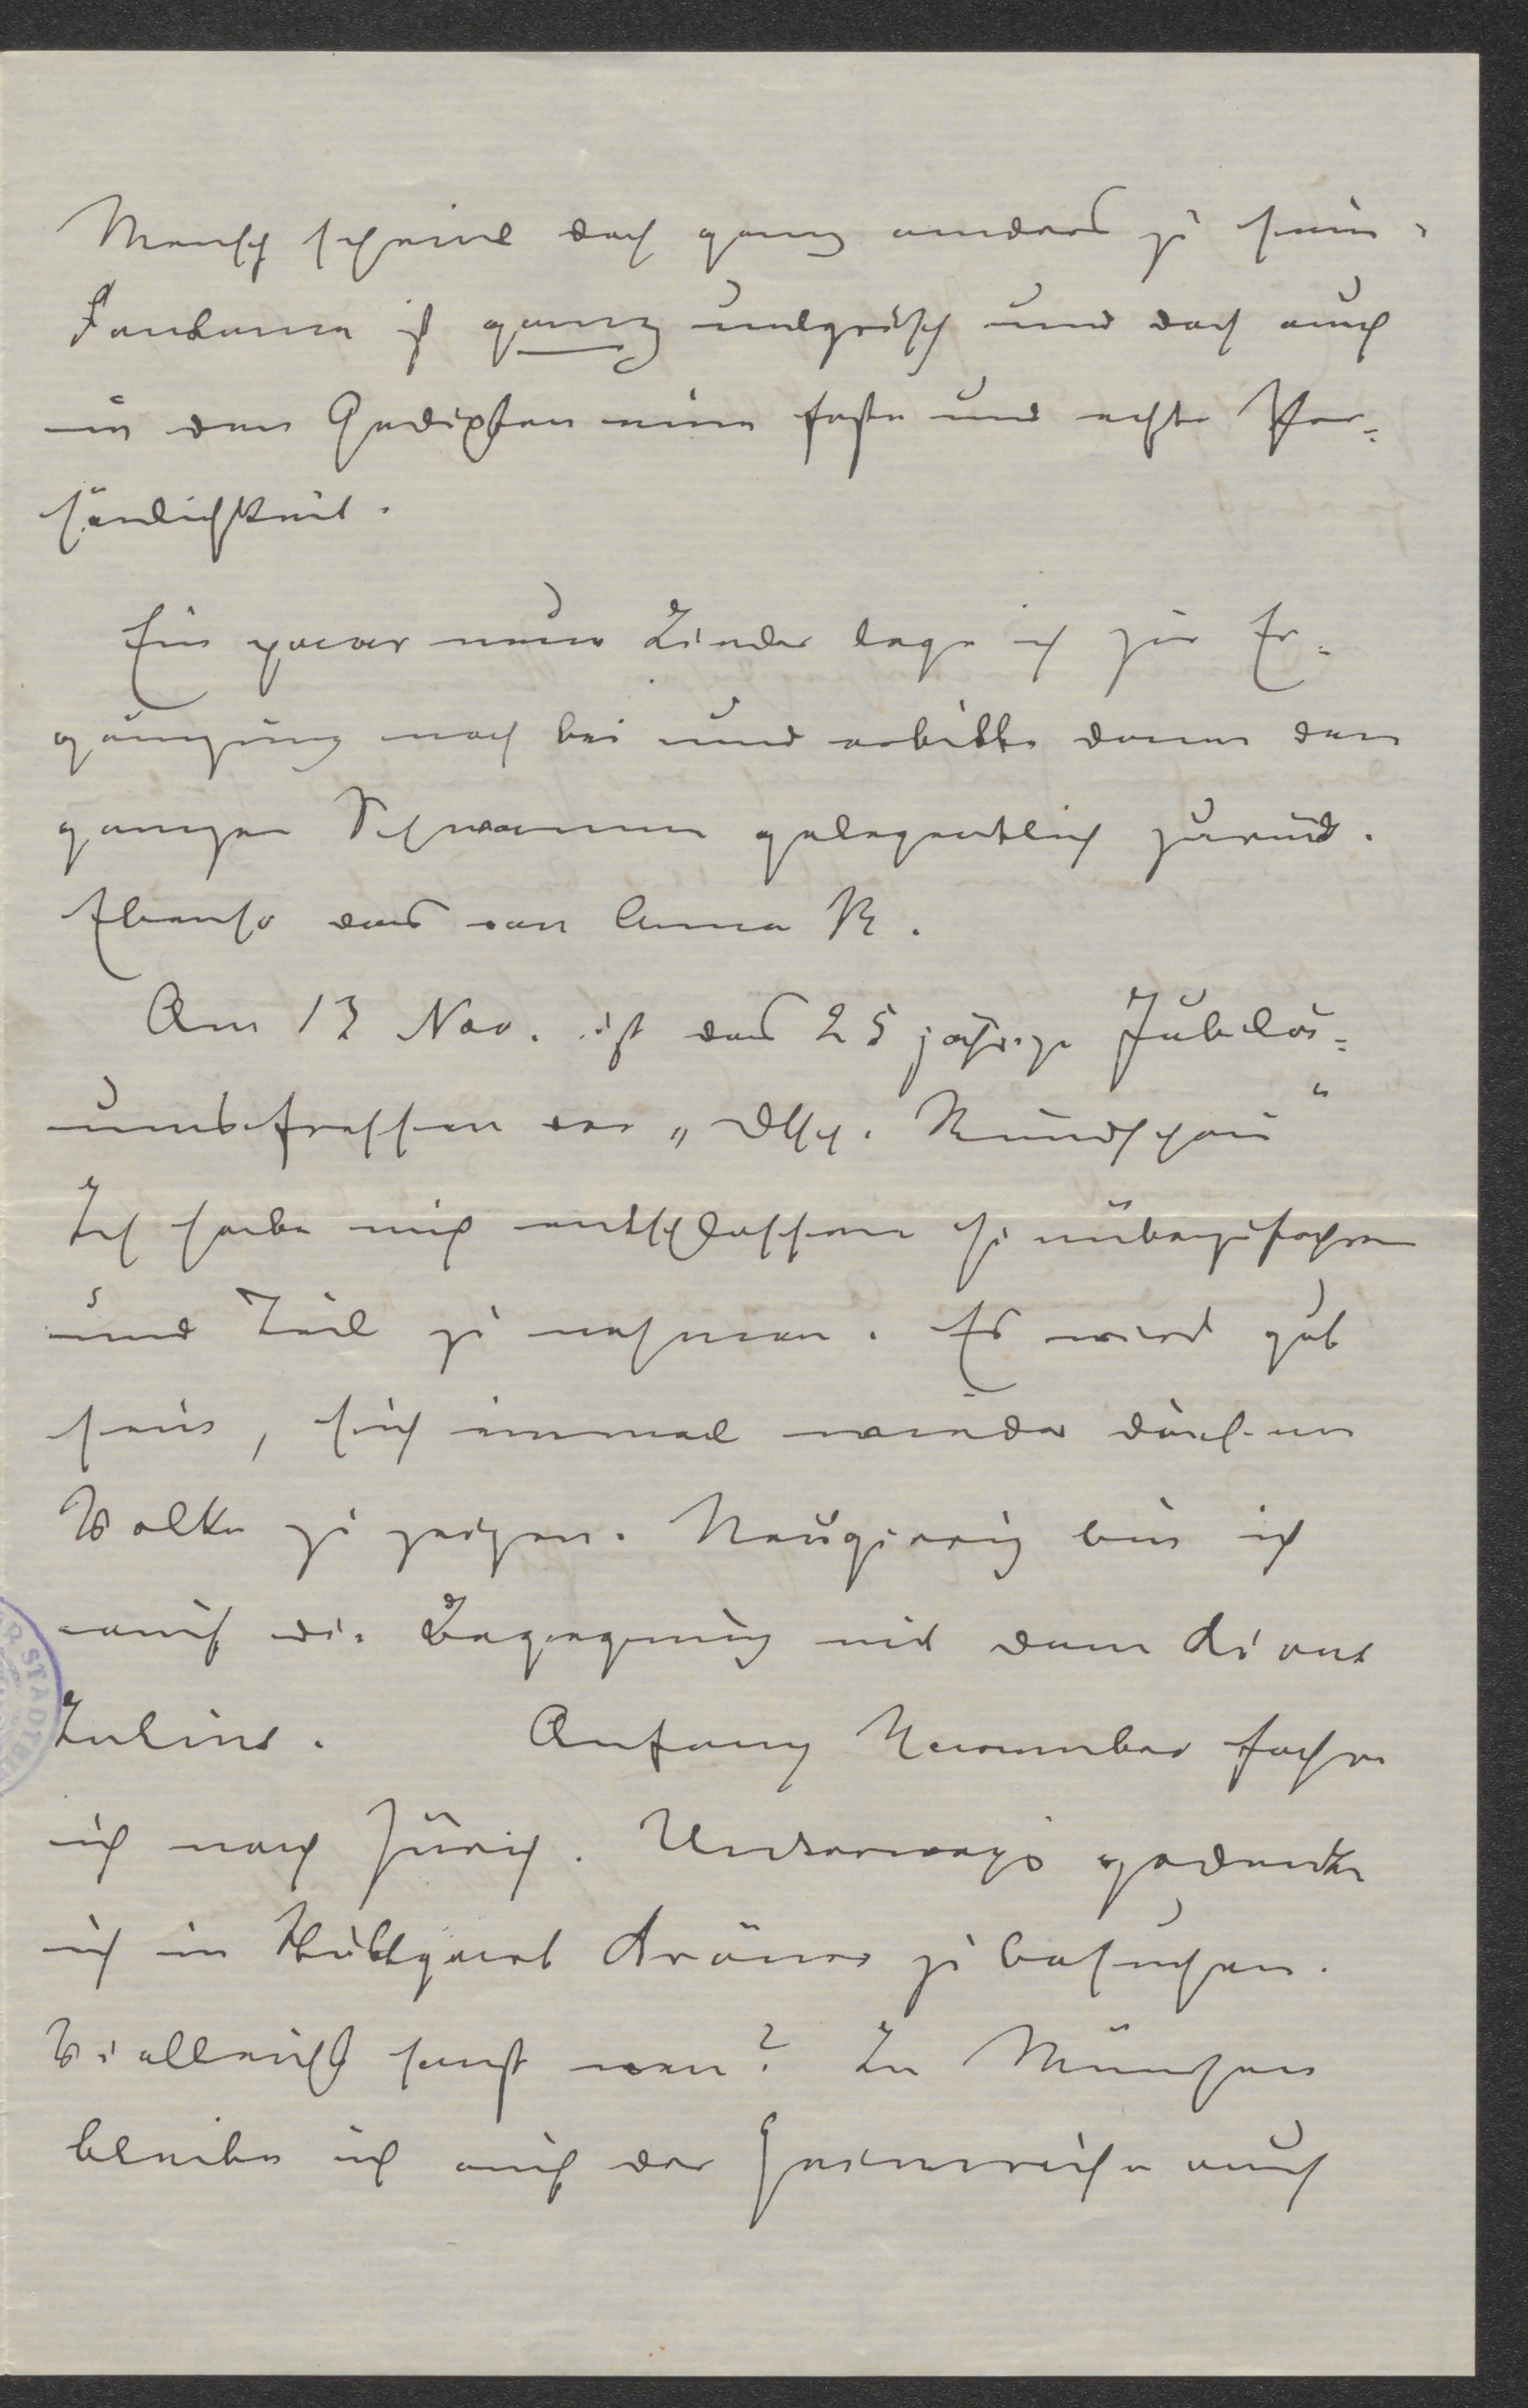 Mensch scheint doch ganz anders zu sein.
Fontane ist ganz unlyrisch und doch auch
in den Gedichten eine feste und echte Per=
sönlichkeit.
Ein paar neue Lieder lege ich zur Er=
gänzung noch bei und erbitte dann den
ganzen Schwamm gelegentlich zurück.
Ebenso das von Anna R.
Am 13 Nov. ist das 25 jährige Jubilä=
umsfressen der „Dtsch. Rundschau"
Ich habe mich entschlossen hinüberzufahren
und Teil zu nehmen. Es wird gut
sein, sich einmal wieder dem
Volke zu zeigen. Neugierig bin ich
auf die Begegnung mit dem
Julius. Anfang November fahre
ich nach Zürich. Unterwegs gedenke
ich in Stuttgart Kröner zu besuchen.
Vielleicht sonst wen? In München
bleibe ich auf der Heimreise auch